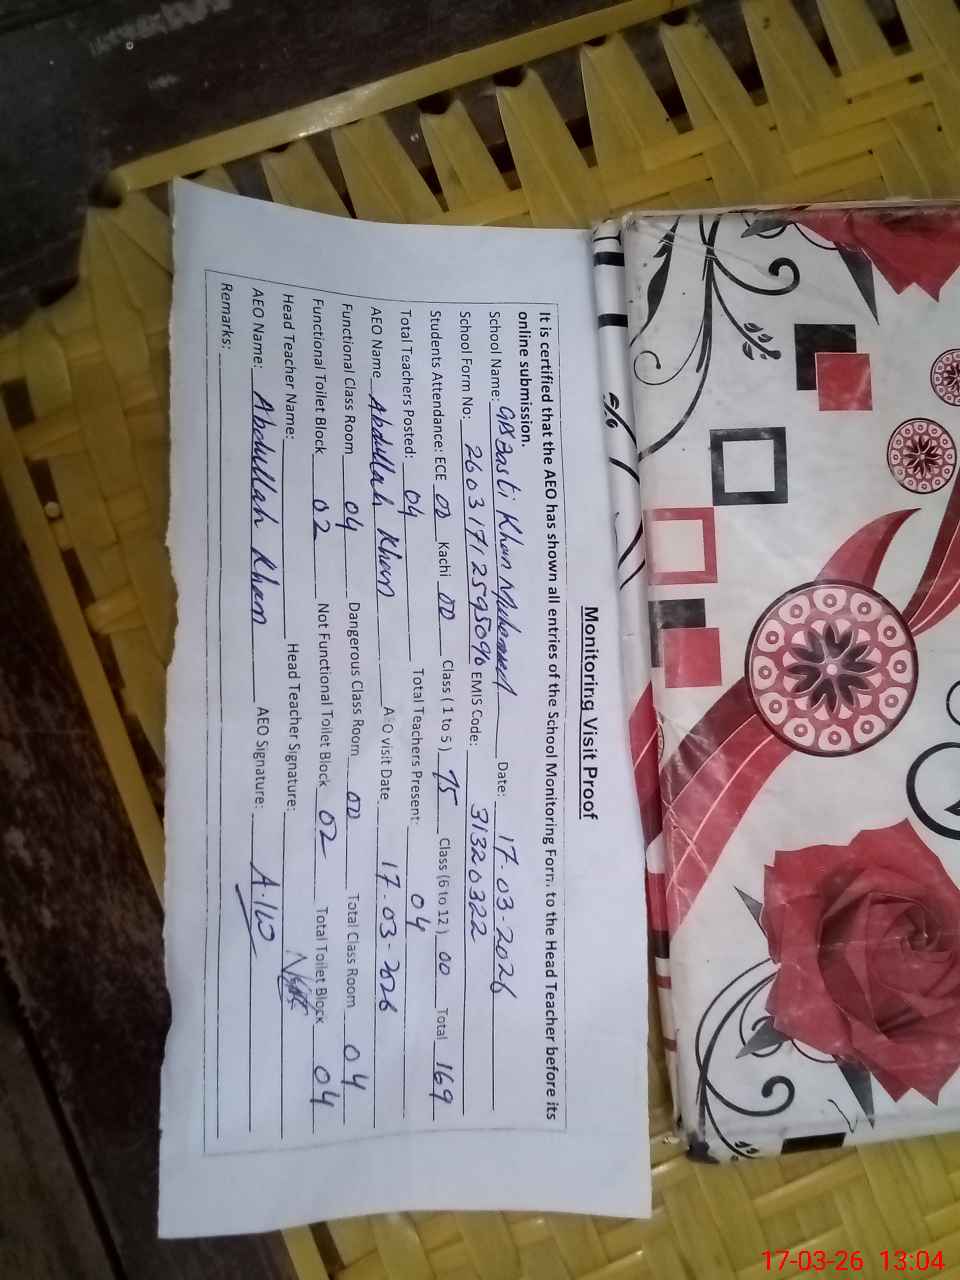 Monitoring Visit Proof
It is certified that the AEO has shown all entries of the School Monitoring Form. to the Head Teacher before its
online submission.
School Name: GPS Basti Khan Muhammad Date: 17-03-2026
School Form No: EMIS Code: 31320322
Students Attendance: ECE 00 Kachi 00 Class (1 to 5) 75 Class (6 to 12) 00 Total 169
Total Teachers Posted: 04 Total Teachers Present: 04
AEO Name Abdullah Khan AEO visit Date 17-03-2026
Functional Class Room 04 Dangerous Class Room 00 Total Class Room 04
Functional Toilet Block 02 Not Functional Toilet Block 02 Total Toilet Block 04
Head Teacher Name: Head Teacher Signature:
AEO Name: Abdullah Khan AEO Signature:
Remarks:
17-03-26 13:04